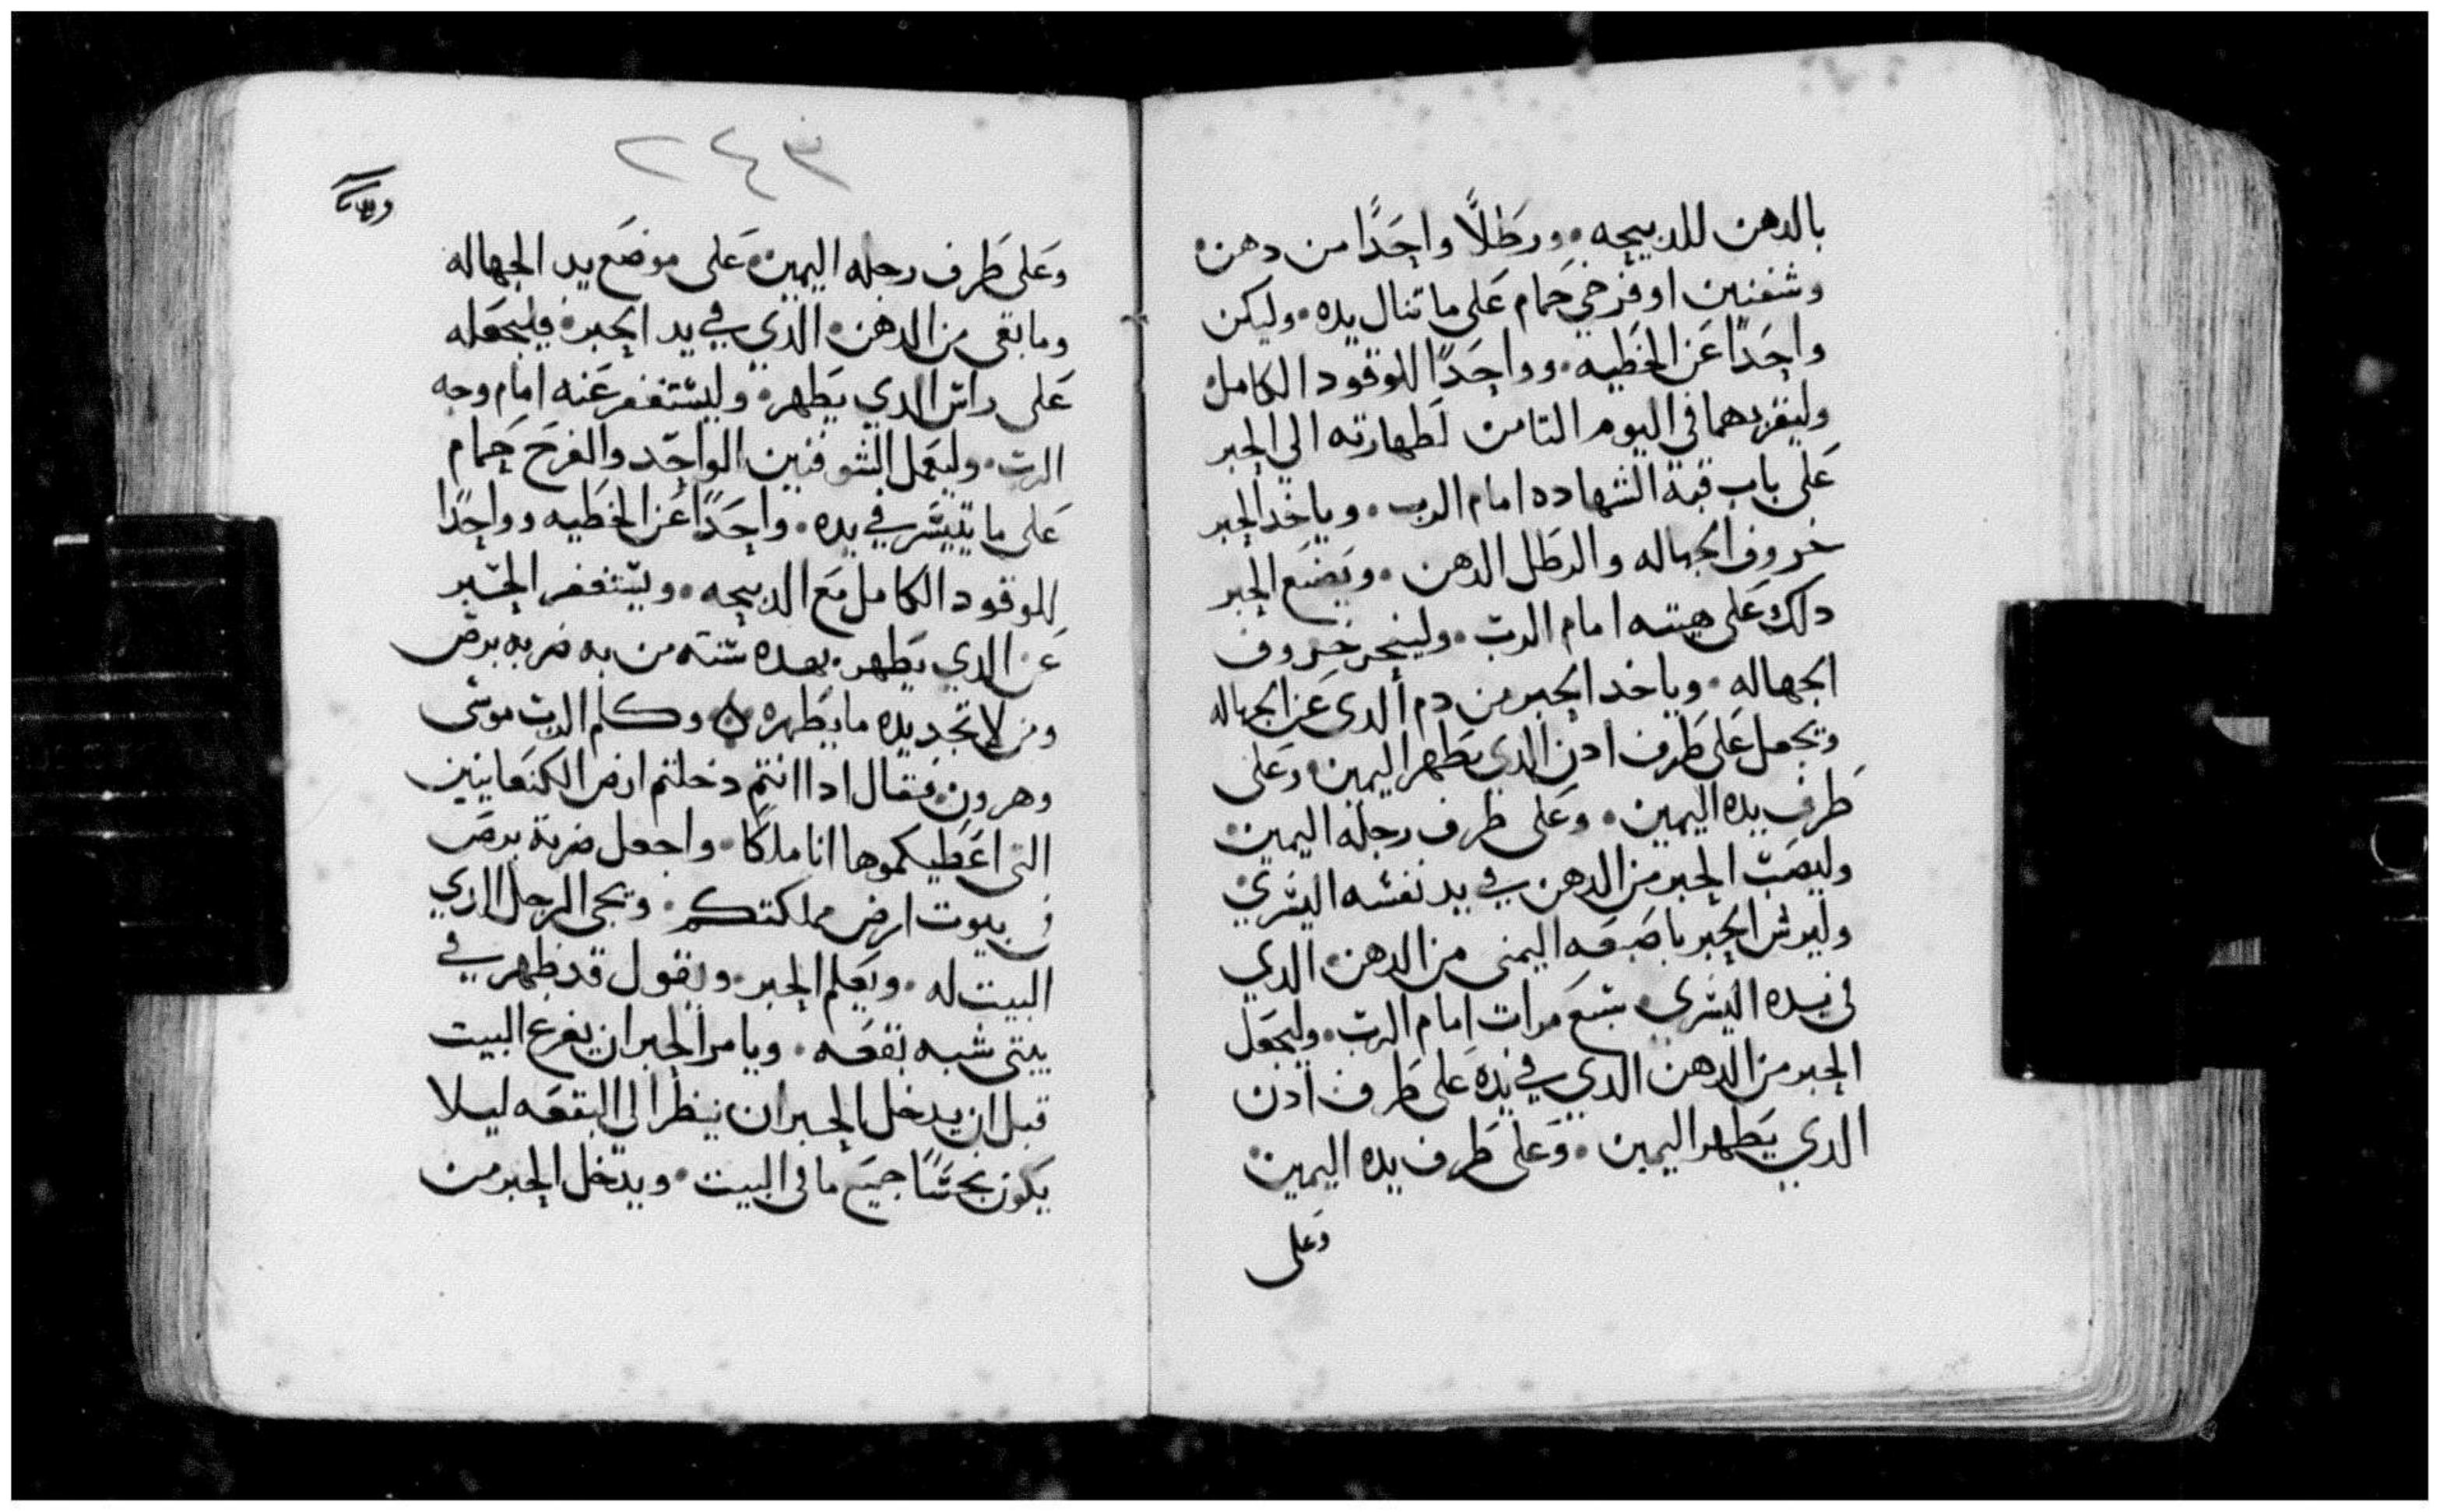 بالدهن للدبيحه • ورطلًا واحدًا من دهن •
وشفنين او فرخي حمام على ما تنال يده • وليكن
واحدًا عن الخطيه • وواحدًا للوقود الكامل
وليقربهما في اليوم التامن لطهارته الي الحبر
على باب قبة الشهاده امام الرب • وياخد الحبر
خروف الجهاله والرطل الدهن • ويضع الحبر
دلك على هيته امام الرب • ولينحر خروف
الجهاله • وياخد الحبر من دم الدى عن الجهاله
ويجعل على طرف ادن الدي يطهر اليمين • وعلى
طرف يده اليمين • وعلى طرف رجله اليمين •
وليصب الحبر من الدهن في يد نفسه اليسري •
وليرش الحبر باصبعه اليمنى من الدهن • الدي
في يده اليسرى • سبع مرات امام الرب • وليجعل
الحبر من الدهن الدي في يده على طرف ادن
الدي يطهر اليمين • وعلى طرف يده اليمين •
وعلى
٢٤٣
وعلى طرف رجله اليمين • على موضع يد الجهاله
وما بقى من الدهن • الدي في يد الحبر • فليجعله
على راس الدي يطهر • وليستغفر عنه امام وجه
الرب • وليعمل الشوفنين الواحد والفرخ حمام
على ما تيسر في يده • واحدًا عن الخطيه وواحدًا
للوقود الكامل مع الدبيحه • ويستغفر الحبر
عن الدي يطهر • بهده سنته من به ضربه برص
ومن لا تجد يده ما يطهره ن وكلم الرب موسى
وهرون • فقال ادا انتم دخلتم ارض الكنعانيين
التى اعطيكموها انا ملكًا • واجعل ضربة برص
في بيوت ارض مملكتكم • ويجى الرجل الدي
البيت له • ويعلم الحبر • ويقول قد ظهر في
بيتى شبه بقعه • ويامر الحبر ان يفرع البيت
قبل ان يدخل الحبر ان ينظر الي البقعه ليلا
يكون نجسًا جميع ما في البيت • ويدخل الحبر من